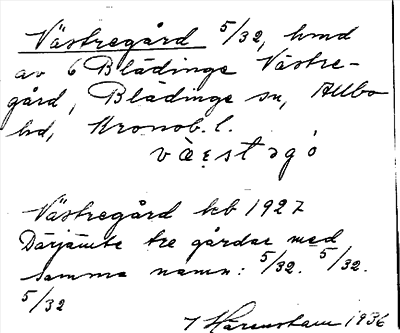 Västregård 5/32, hmd
av 6 Blädinge Västre-
gård, Blädinge sn, Allbo
hd, Kronob. l.
væ̀ṣtəgó
Västregård kb 1927
Därjämte tre gårdar med
samma namn: 5/32. 5/32.
5/32
Härenstam 1936